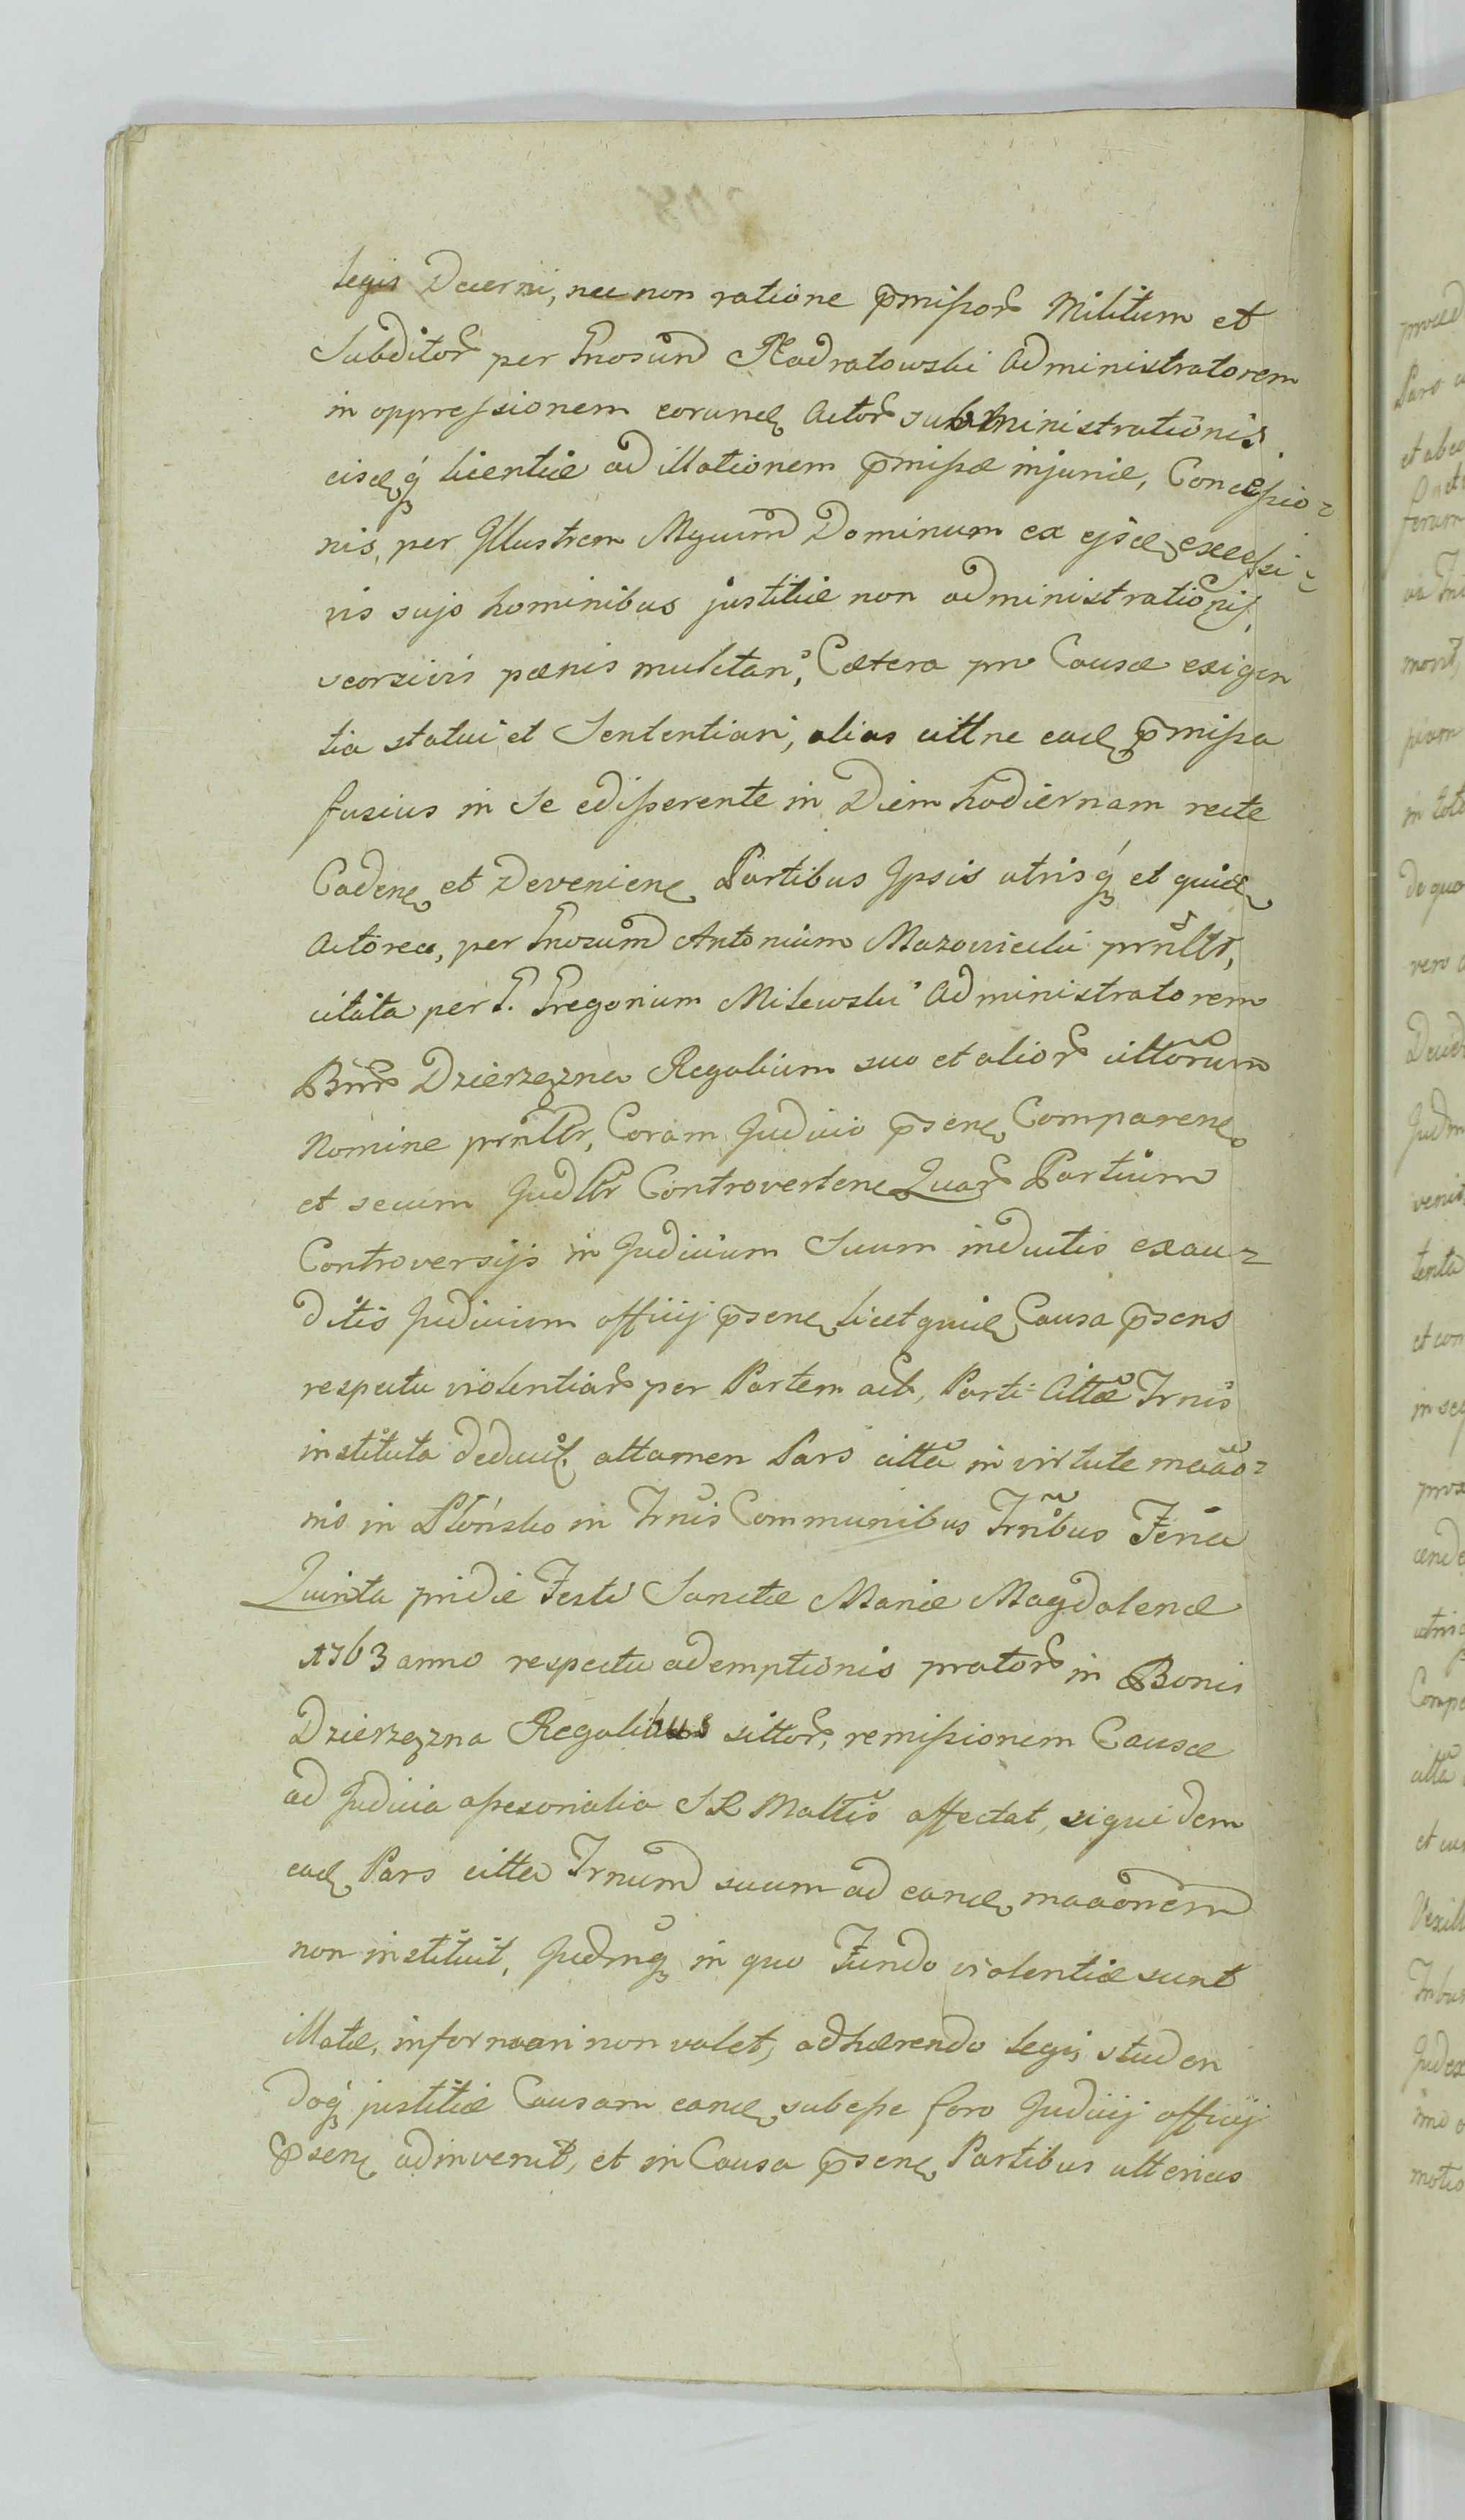 legis Decerni, nec non ratione p̄missor̄ Militum et
Subditor̄ per Gnosum̄ Radratowski Administratorem
in oppressionem eorund. Actor̄ subministrationis
eisd.q́ licentiæ ad illationem p̄missæ injuriæ, Concessio=
nis, per Illustrem Mgcum̄ Dominum ex ejsd. excessi=
vis sujs hominibus justitiæ non administrationis,
seorsivis pænis mulctari, Cætera pro Causæ exigen
tia statui et Sententiari, alias cittne ead. p̄missa
fusius in se edisserente in Diem hodiernam recte
Caden. et Devenien. Partibus Ipsis utrisq́ et quid.
Actorea, per Gnosum̄ Antonium Mazowiecki prnltr,
citata per G. Gregorium Milewski Administratorem
Bnr̄ Dzierzęzna Regalium suo et alior̄ cittorum
Nomine prnltr, Coram Judicio p̄sen. Comparen.
et secum Judltr Controverten. Quar̄ Partium
Controversijs in Judicium Suum inductis exau=
ditis Judicium officij p̄sen. licet quid. Causa p̄sens
respectu violentiar̄ per Partem act, Parti Cittæ Trnis
instituta deduct. attamen Pars citta in virtute maao=
nis in Płońsko in Trnis Communibus Trñbus Feria
Quinta pridie Festi Sanctæ Mariæ Magdalenæ
1763 anno respectu ademptionis prator̄ in Bonis
Dzierzęzna Regalibus sittor̄, remissionem Causæ
ad Judicia assesorialia S R Mattis affectat, siquidem
ead. Pars citta Trnum̄ suum ad eand. maaonem
non instituit, Judmq in quo Fundo violentiæ sunt
illatæ, informari non valet, adhærendo legi, studen
doq́ justitiæ Causam eand. subesse foro Judicij officij
p̄sen. adinvenit, et in Causa p̄sen. Partibus ulterius